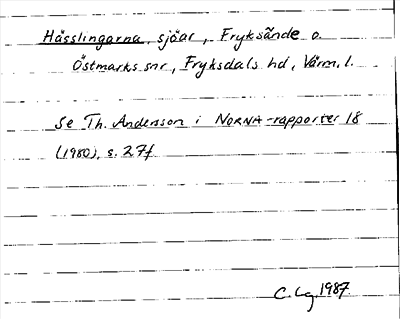 Hässlingarna, sjöar, Fryksände o.
Östmarks snr, Fryksdals hd, Värml.
Se Th. Andersson i NORNA-rapporter 18
(1980), s. 27f
C. Lg. 1987